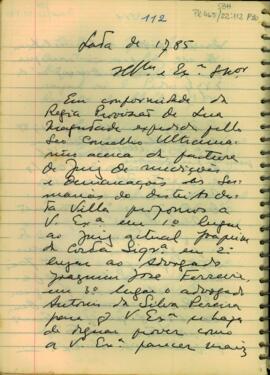 112
SBH
Pk 063/22:112 P20
Lata de 1785
Illmo e Exmo Snor
Em conformidade da
Regia Provizão de Sua
Magestade expedida pello
Seo Conselho Ultrama-
rino acerca da factura
de Juiz de medições
e demarcações das Ses-
marias do districto des-
ta Villa propomos a
V Exa em 1º lugar
ao Juiz actual Joaquim
da Costa Siqra em 2º
lugar ao Advogado
Joaquim José Ferreira,
em 3º lugar o advogado
Antonio da Silva Pereira
para q V Exa se haja
de dignar prover como
a V Exa parecer mais